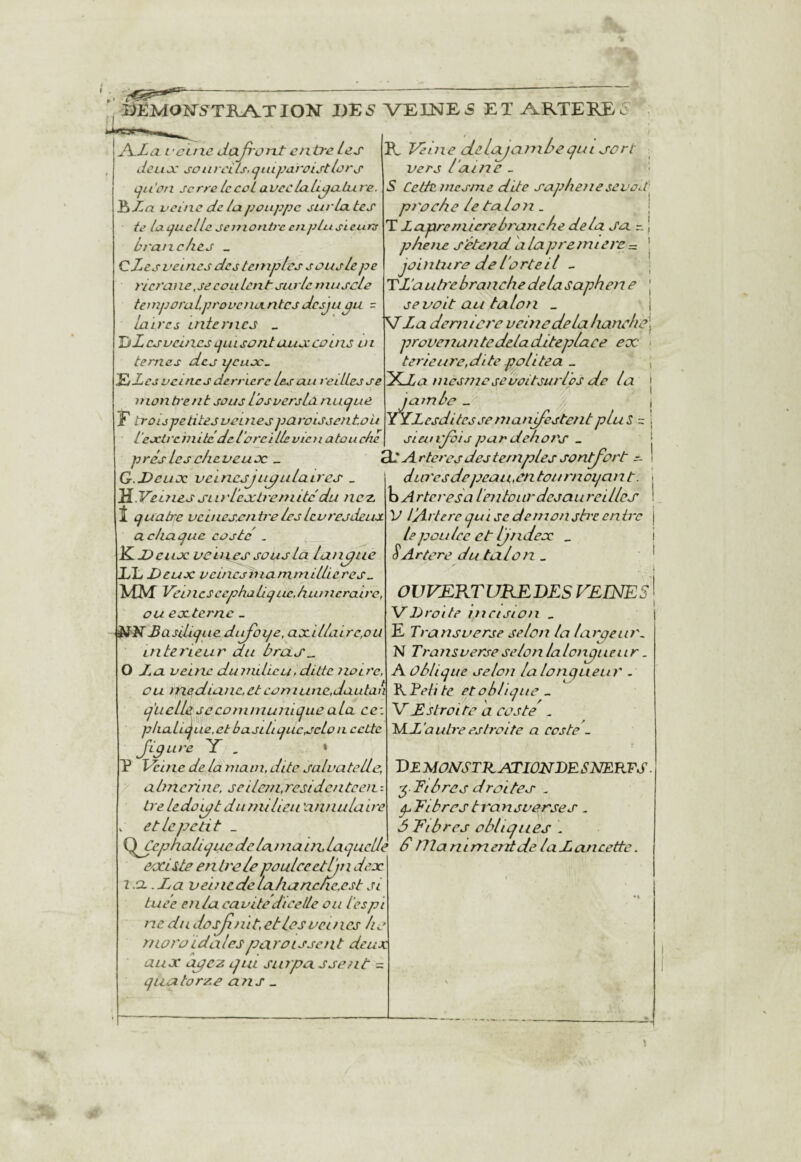 DEMONSTRATION DES VEINES ET ARTERES
A La veine du front entre les
deux sourcils, qui paroist lors
qu'on serre le col avec la ligature.
B La veine de la pouppe sur la tes
te laquelle se montre en plusieurs
branches _
C Les veines des temples sous le pe
ricrane, se coulent sur le muscle
temporal, provenantes des jugu =
laires internes _
D Les veines qui sont aux coins in
ternes des yeux _
E Les veines derriere les aureilles se
montrent sous l'os vers la nuque
F trois petites veines paroissent, ou
l'extremité de l'oreille vien a touché
prés les cheveux _
G. Deux veines jugulaires _
H. Veines sur l'extremité du nez
I quatre veines, entre les levres deux
a chaque costé _
K Deux veines sous la langue
LL Deux veines mammillieres _
MM Veines cephalique, humeraire,
ou externe _
NN Basilique du foye, axillaire, ou
interieur du bras _
O La veine du milieu, ditte noire,
ou mediane, et comune, dautan
qu'elle se communique a la ce =
phalique, et basilique, selon cette
figure Y _
P Veine de la main, dite salvatelle,
abnerine, seilem, resident en =
tre le doigt du milieu annulaire
et le petit _
Q Cephalique de la main, laquelle
existe entre le poulce et l'jndex
1.2.. La veine de la hanche, est si
tuée en la cavité d'icelle ou l'espi
ne du dos finit, et les veines he
moroidales paroissent deux
aux agez qui surpassent =
quatorze ans _
R Veine de la jambe qui sort
vers l'aine _
S Cette mesme dite saphene se voit
proche le talon _
T La premiere branche de la sa =
phene s'étend a la premiere =
jointure de l'orteil _
T L'autre branche de la saphene
se voit au talon _
V La derniere veine de la hanche
provenante de la dite place ex
terieure, dite politea _
X La mesme se voit sur l'os de la
jambe _
YY Lesdites se manifestent plus =
sieurs fois par dehors _
a Arteres des temples sont fort =
dures de peau, en tournoyant.
b Arteres a lentour des aureilles
V l'Artere qui se demonstre entre
le poulce et l'jndex _
S Artere du talon _
OUVERTURE DES VEINES
V Droite incision _
E Transverse selon la largeur _
N Transverse selon la longueur _
A Oblique selon la longueur _
R Petite et oblique _
V Estroite a costé _
M L'autre estroite a costé _
DEMONSTRATION DES NERFS.
3. Fibres droites _
4 Fibres transverses _
5 Fibres obliques _
6 Maniment de la Lancette.